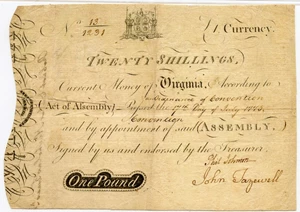 No 13
1891
Currency.
TWENTY SHILLINGS,
Current Money of Virginia, According to
Ordinance of Convention
(Act of Assembly) Passed the 17th Day of July 1775.
Convention
and by appointment of said (ASSEMBLY.
Signed by us and endorsed by the Treasurer
Phil Johnson
John Tazewell
One Pound